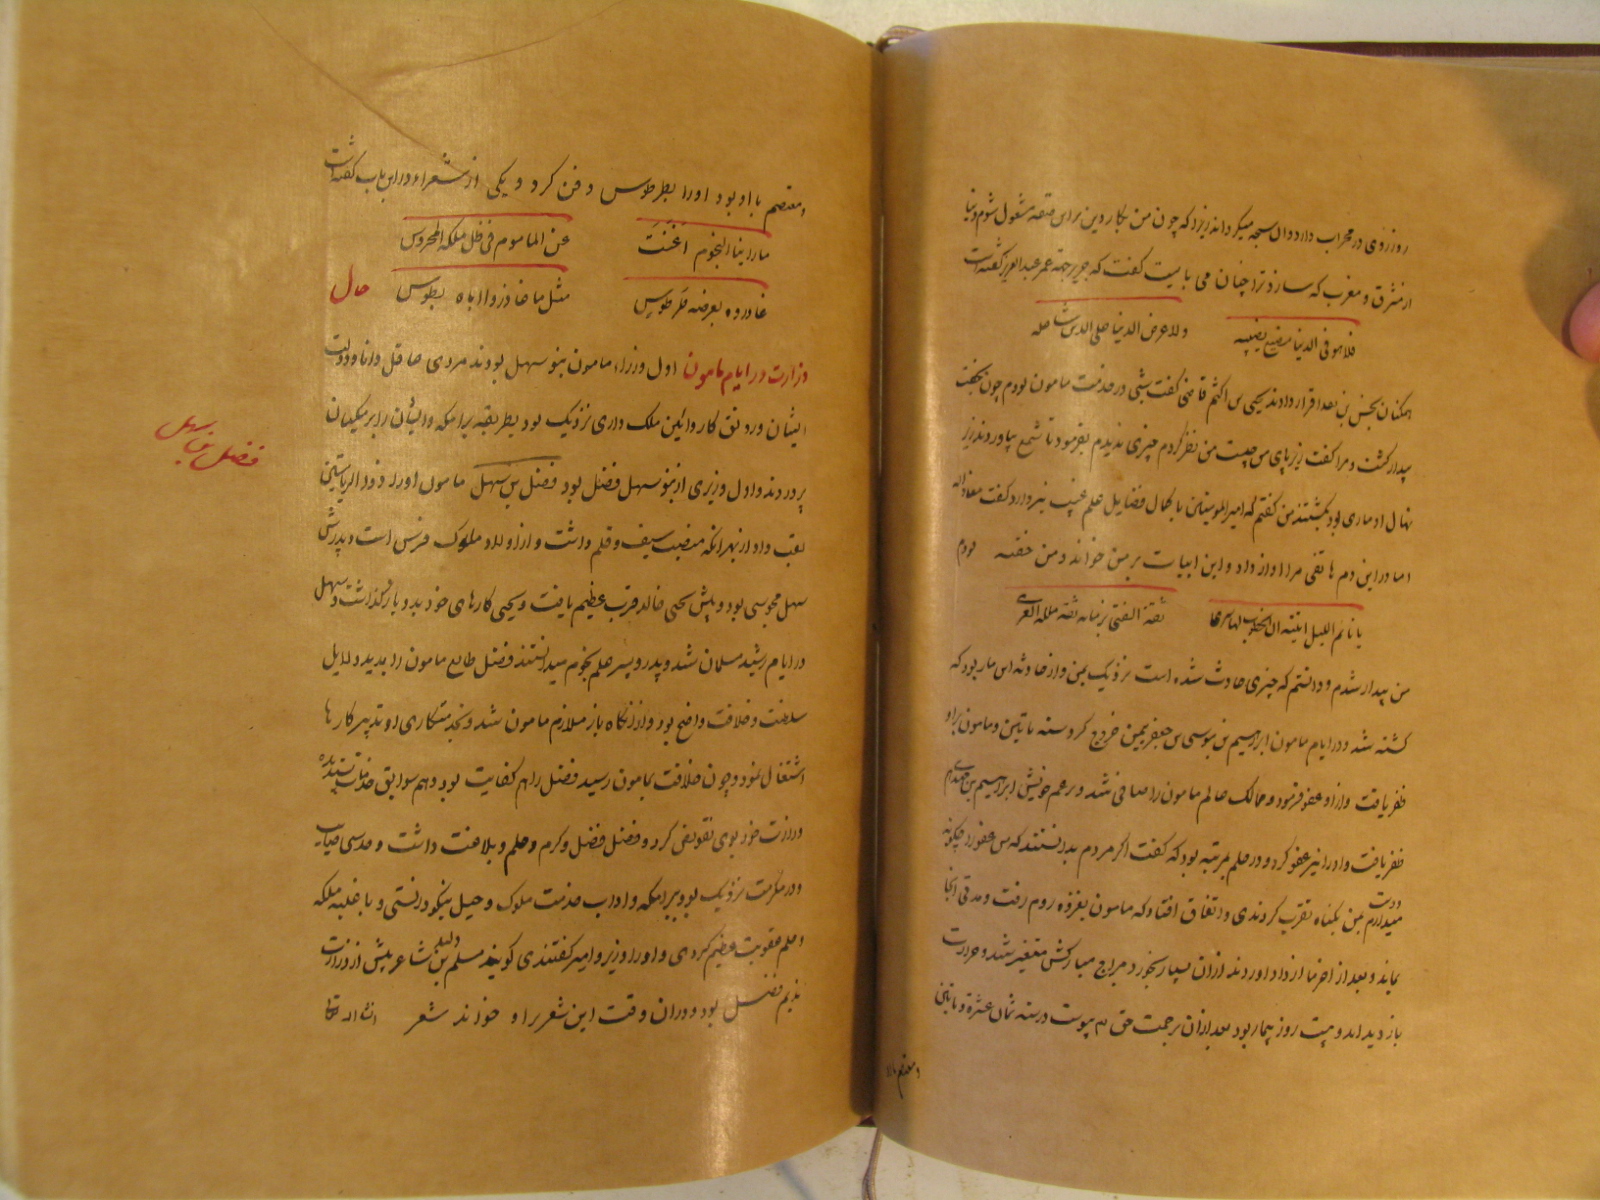 روزروی در محراب دارد و ان سبحه میکرداند زیرا که چون من بکار دین براین متعه مشغول شوم دنیا
از مشرق و مغرب که سازد ترا چنان می بایست کفت که جریر جهة عمر عبدالعزیز کفته است
فلا هو فی الدنیا مضیع نصیبه
ولا عرض الدنیا علی الدین شاغله
همکنان بحسن بن نقد اقرار دادند یحیی بن اکثم قاضی کفت شبی در خدمت مامون بودم چون بخفت
بیدار کشت و مرا کفت زیر پای من چیست من نظر کردم چیزی ندیدم بفرمود تا شمع بیاوردند زیر
نهال او ماری بود بکشتند من کفتم که امیر المومنین با کمال فضایل علم غیب نیز دارد کفت معاذ الله
اما در این دم هاتفی مرا اواز داد و این ابیات بر من خواند و من خفته بودم
یا نائم اللیل انتبه ان الخطوب لها سری
ثقة الفتی بزمانه ثقة محللة العری
من بیدار شدم و دانستم که چیزی حادث شده است نزدیک بمن و از حادثه این مار بود که
کشته شد و در ایام مامون ابراهیم بن موسی بن جعفر بیمن خروج کرد سنه مایتین و مامون براو
ظفر یافت و از او عفو فرمود و ممالک عالم مامون را صافی شد و بر عم خویش ابراهیم بن مهدی هم
ظفر یافت و او را نیز عفو کرد و در حلم بمرتبه بود که کفت اکر مردم بدانستند که من عفو را چکونه
دوست
میدارم بمن بکناه تقرب کردندی و اتفاق افتاد که مامون بغزوه روم رفت و مدتی انجا
بماند و بعد از اخر ما ازاد اوردند از ان بسیار بخورد مزاج مبارکش متغیر شد و حرارت
بازدید امد و بیست روز بیمار بود بعد از ان برحمت حق هم پیوست در سنه ثمان عشرة و مایتین
و معتصم با او
و معتصم با او بود او را بطرطوس دفن کرد و یکی از شعراء در این باب کفته است
ما راینا النجوم اغنت
عن المامون فی ظل ملکه المحروس
غادروه بعرصة طرطوس
مثل ما غادروا اباه بطوس
حال
وزارت در ایام مامون اول وزراء مامون بنو سهل بودند مردی عاقل دانا و دولت
ایشان و رونق کار و ائین ملک داری نزدیک بود بطریقه برامکه و ایشان را برمکیان
پروردند و اول وزیری از بنو سهل فضل بود فضل بن سهل مامون او را ذو الریاستین
فضل بن سهل
لقب داد از بهر انکه منصب سیف و قلم داشت و از اولاد ملوک فرس است و پدرش
سهل مجوسی بود و پیش یحیی خالد قرب عظیم یافت و یحیی کارهای خود بدو بازکذاشت و سهل
در ایام رشید مسلمان شد و پدر و پسر علم نجوم میدانستند فضل طالع مامون را بدید و دلایل
سلطنت و خلافت واضح بود و از انکاه باز ملازم مامون شد و بخدمتکاری او و تدبیر کارها
اشتغال نمود و چون خلافت بمامون رسید فضل را هم کفایت بود و هم سوابق خدمات پسندیده
وزارت خود بوی تفویض کرد و فضل فضل و کرم و حلم و بلاغت داشت و حدسی صایب
و در مکرمت نزدیک بود ببرامکه و اداب خدمت ملوک و حیل نیکو دانستی و با غلبه ملکه
و حلم عقوبت عظیم کردی و او را وزیر و امیر کفتندی کویند مسلم بن ولید شاعر پیش از وزارت
ندیم فضل بود و در ان وقت این شعر را و خواند شعر انشا الله تعالی